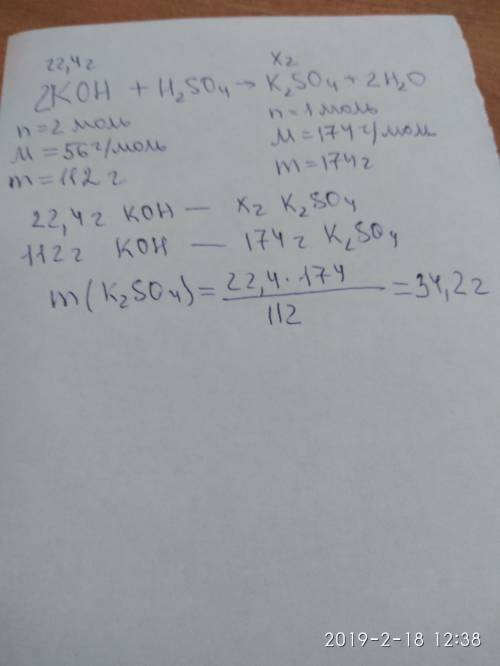 22,4г хг
2KOH + H₂SO₄ → K₂SO₄ + 2H₂O
n = 2 моль n = 1 моль
M = 56 г/моль M = 174 г/моль
m = 112 г m = 174 г
22,4 г KOH — хг K₂SO₄
112 г KOH — 174 г K₂SO₄
m(K₂SO₄) = 22,4 · 174 / 112 = 34,2 г
2019-2-18 12:38